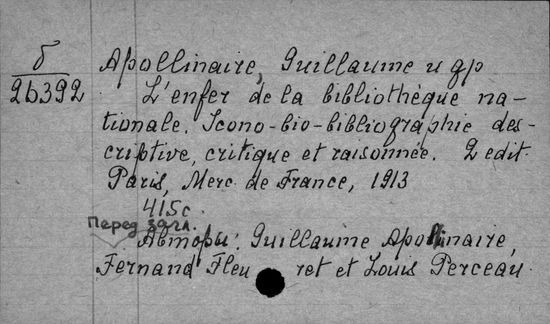 б
26392
Apollinaire, Guillaume и др
L'enfer de la bibliothèque na-
tionale. Icono-bio-bibliographie des-
criptive, critique et raisonnée. 2 edit.
Paris, Merc. de France, 1913
415с.
Перед загл.
Авторы: Guillaume Apollinaire,
Fernand Fleuret et Louis Perceau.